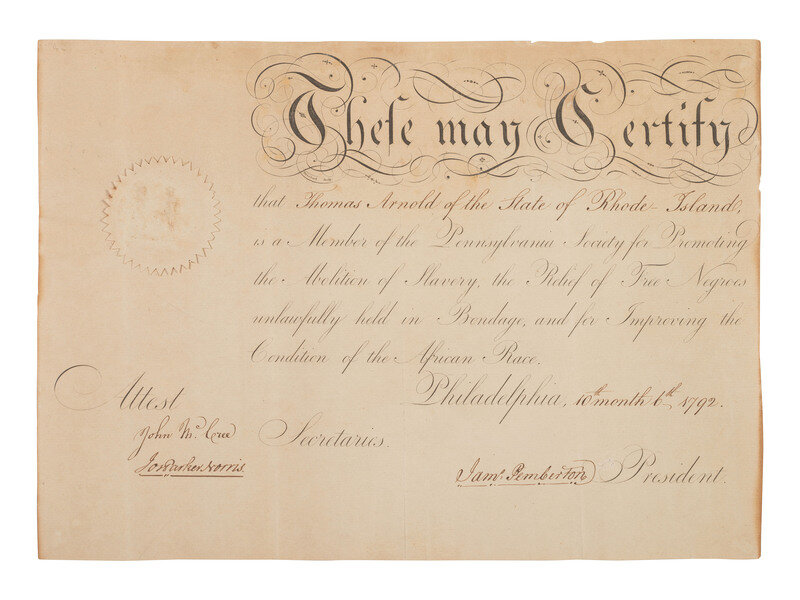 Theſe may Certify
that Thomas Arnold of the State of Rhode-Island,
is a Member of the Pennsylvania Society for Promoting
the Abolition of Slavery, the Relief of Free Negroes
unlawfully held in Bondage, and for Improving the
Condition of the African Race.
Philadelphia, 10th month 6th 1792.
Attest
John McCree
Jos Parker Norris
Secretaries.
Jams Pemberton President.